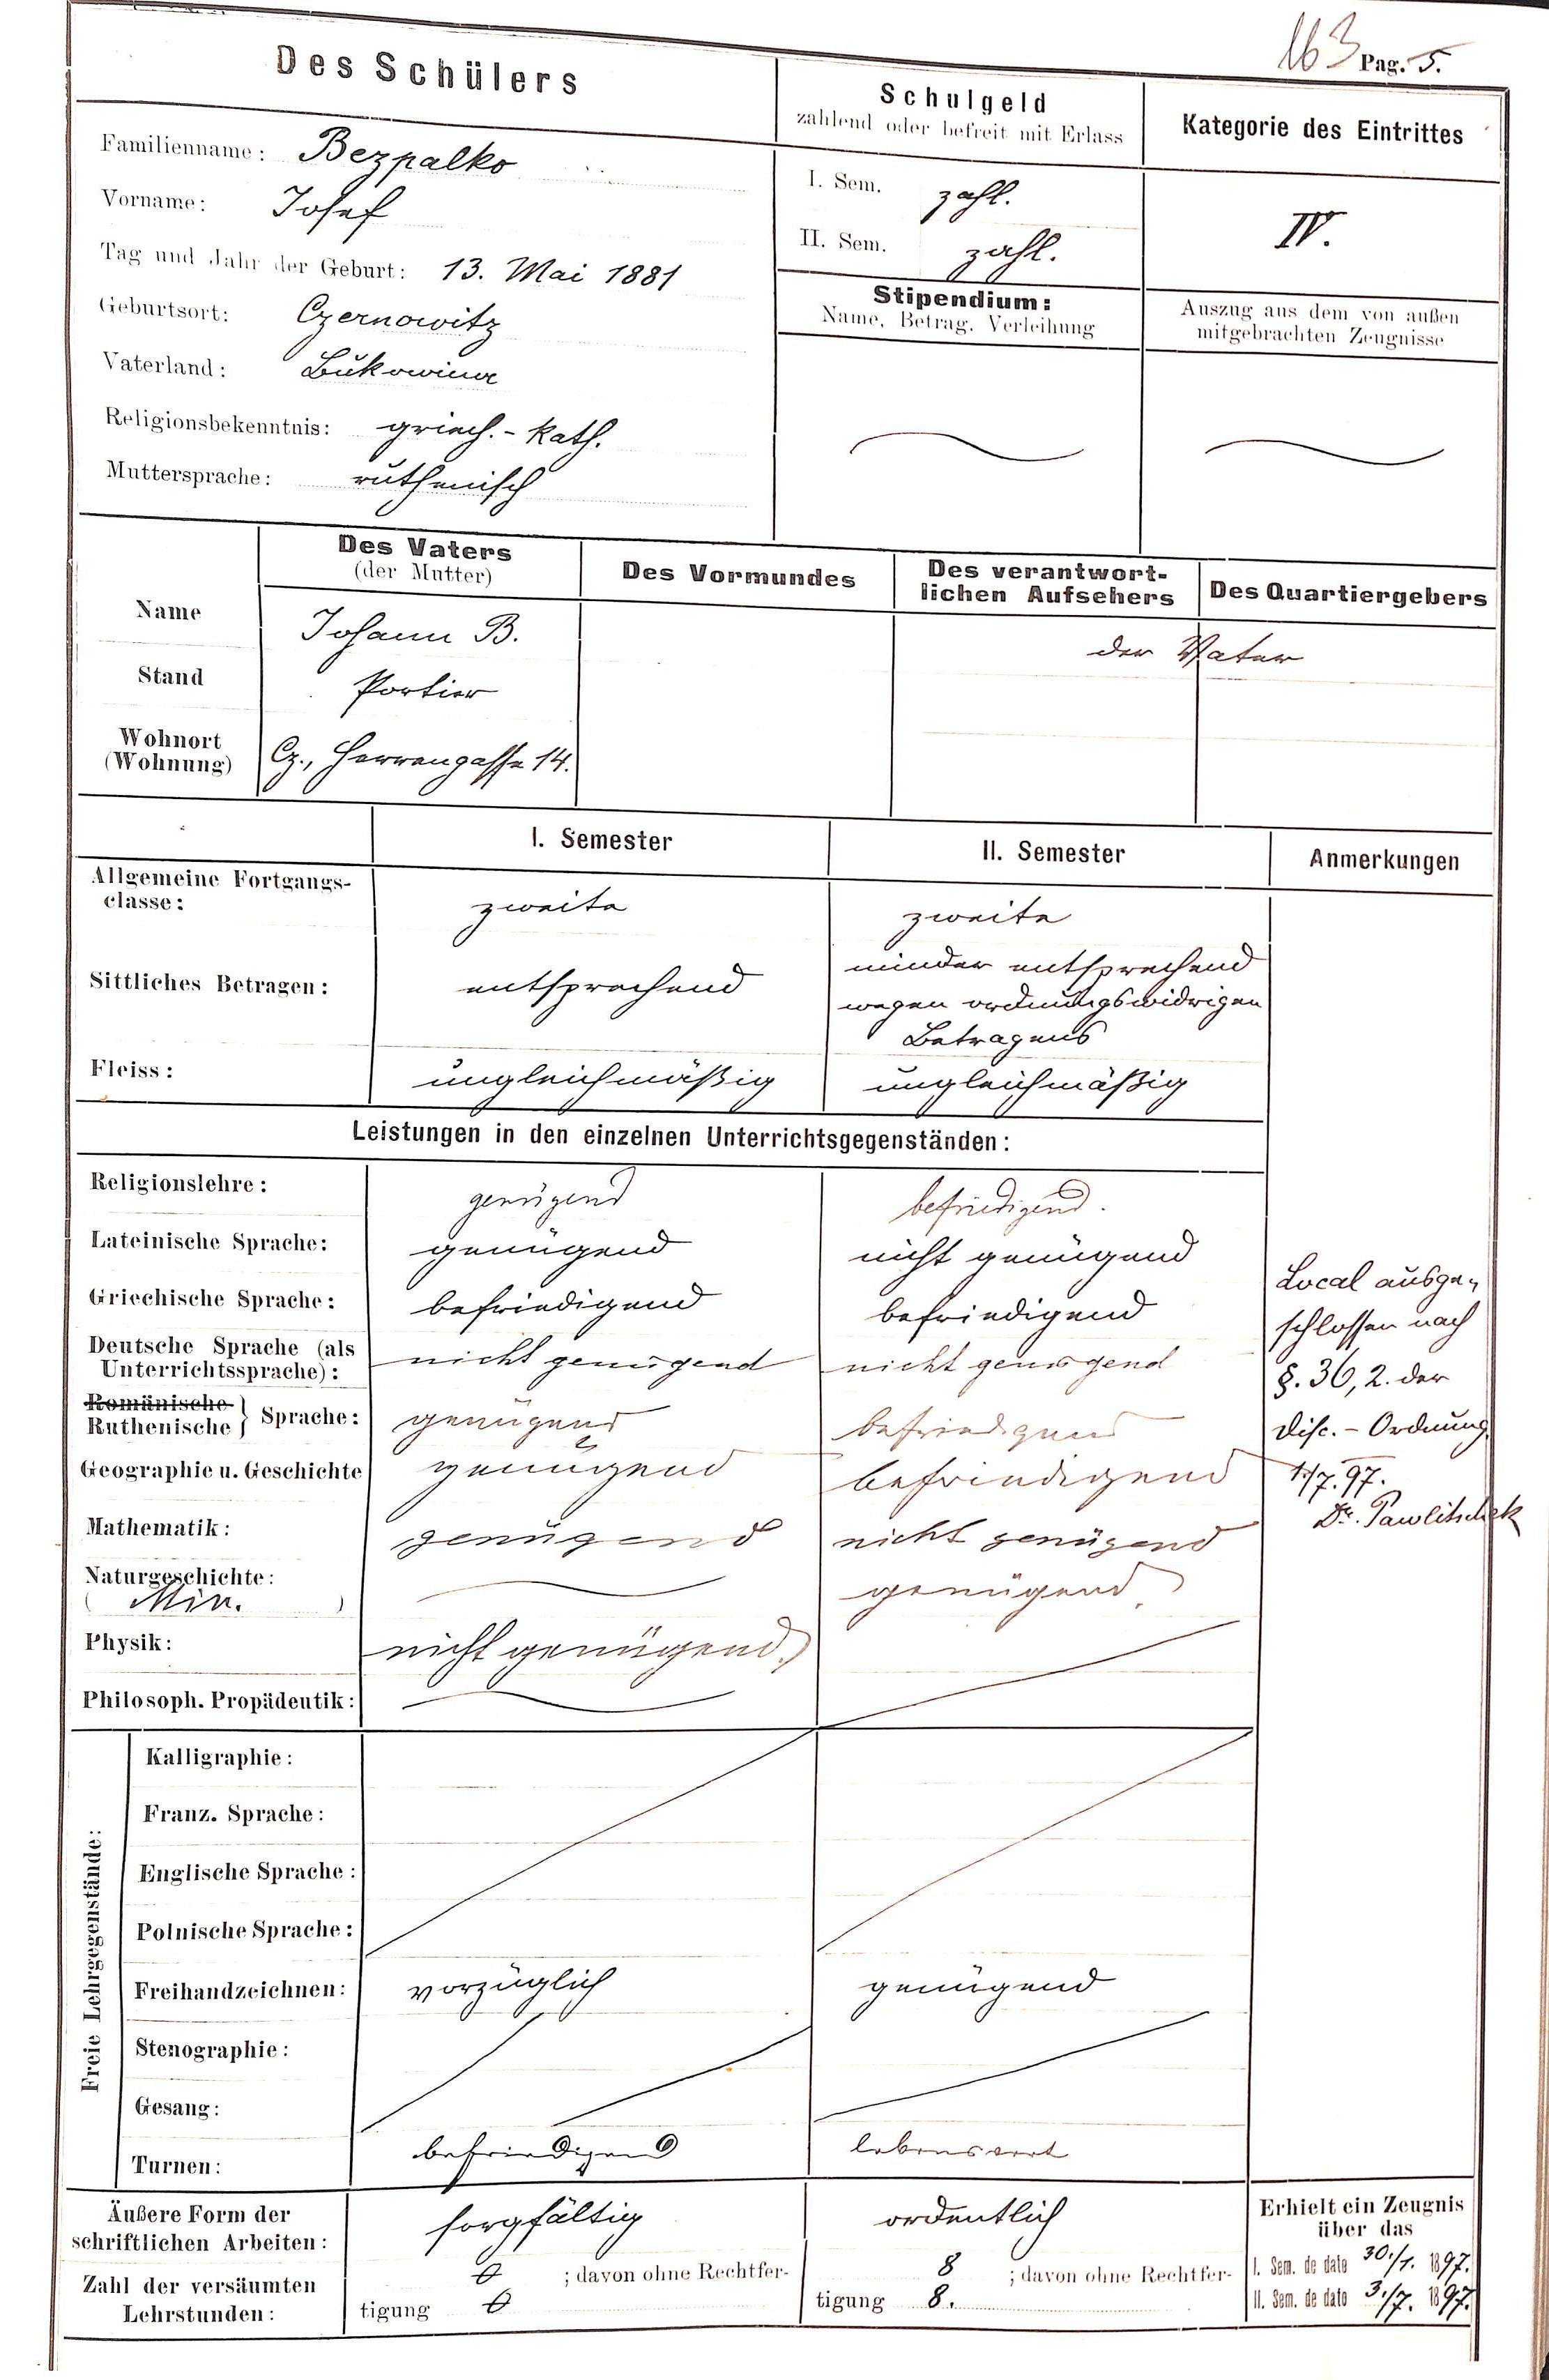 163 Pag. 5.
Des Schülers
Schulgeld
zahlend oder befreit mit Erlass
Kategorie des Eintrittes
Familienname: Bezpalko
Vorname: Josef
Tag und Jahr der Geburt: 13. Mai 1881
Geburtsort: Czernowitz
Vaterland: Bukowina
Religionsbekenntnis: griech.-kath.
Muttersprache: ruthenisch
I. Sem. zahl.
II. Sem. zahl.
IV.
Stipendium:
Name, Betrag, Verleihung
Auszug aus dem von außen
mitgebrachten Zeugnisse
Des Vaters
(der Mutter)
Des Vormundes
Des verantwort-
lichen Aufsehers
Des Quartiergebers
Name Johann B. der Vater
Stand Portier
Wohnort
(Wohnung) Cz., Herrengasse 14.
I. Semester II. Semester Anmerkungen
Allgemeine Fortgangs-
classe: zweite zweite
Sittliches Betragen: entsprechend minder entsprechend
wegen ordnungswidrigen
Betragens
Fleiss: ungleichmäßig ungleichmäßig
Leistungen in den einzelnen Unterrichtsgegenständen:
Religionslehre: genügend befriedigend.
Lateinische Sprache: genügend nicht genügend
Griechische Sprache: befriedigend befriedigend
Deutsche Sprache (als
Unterrichtssprache): nicht genügend nicht genügend
Romänische
Ruthenische } Sprache: genügend befriedigend
Geographie u. Geschichte genügend befriedigend
Mathematik: genügend nicht genügend
Naturgeschichte:
( Min. ) genügend
Physik: nicht genügend
Philosoph. Propädeutik:
Local ausge-
schlossen nach
§. 36, 2. der
Disc.-Ordnung.
1/7. 97.
Dr. Pawlitschek
Freie Lehrgegenstände:
Kalligraphie:
Franz. Sprache:
Englische Sprache:
Polnische Sprache:
Freihandzeichnen: vorzüglich genügend
Stenographie:
Gesang:
Turnen: befriedigend lobenswert
Äußere Form der
schriftlichen Arbeiten: sorgfältig ordentlich
Zahl der versäumten
Lehrstunden: 0 ; davon ohne Rechtfer-
tigung 0
8 ; davon ohne Rechtfer-
tigung 8.
Erhielt ein Zeugnis
über das
I. Sem. de dato 30./1. 1897.
II. Sem. de dato 3./7. 1897.